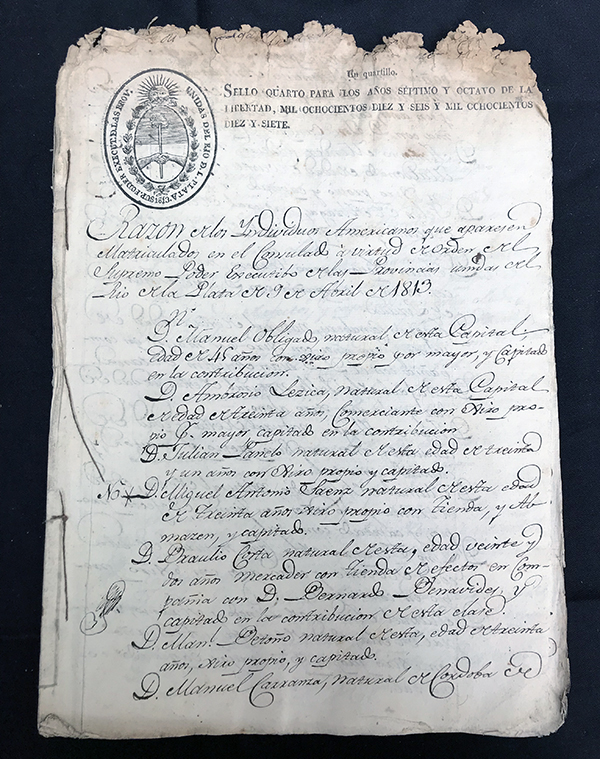 Un quartillo.
SELLO QUARTO PARA LOS AÑOS SÉPTIMO Y OCTAVO DE LA
LIBERTAD, MIL OCHOCIENTOS DIEZ Y SEIS Y MIL OCHOCIENTOS
DIEZ Y SIETE.
SUP. PODER EXECUT. D. LAS PROV. UNIDAS DEL RIO D. L. PLATA 1813
Razon de los Yndividuos Americanos que aparesen
Matriculados en el Consulado à virtud de orden del
Supremo Poder Executibo de las Provincias unidas del
Rio de la Plata de 9 de Abril de 1813.
D. Manuel Obligado natural de esta Capital,
edad de 48 años con Jiro propio por mayor, y Capitado
en la contribucion.
D. Ambrosio Lezica, natural de esta Capital
de edad de treinta años, Comerciante con Jiro pro-
pio p. mayor, capitado en la contribucion
D. Julian natural de esta edad de treinta
y un años con Jiro propio y capitado.
No D. Miguel Antonio Saenz natural de esta edad
de treinta años Jiro propio con tienda, y Al-
mazen, y capitado.
D. Braulio Costa natural de esta, edad veinte y
dos años mercader con tienda de efectos en Com-
pañia con D. Bernardo Benavides, y
capitado en la contribucion de esta clase.
D. Man.l natural de esta, edad de treinta
años, Jiro propio, y capitado.
D. Manuel Carranza, natural de Cordoba de